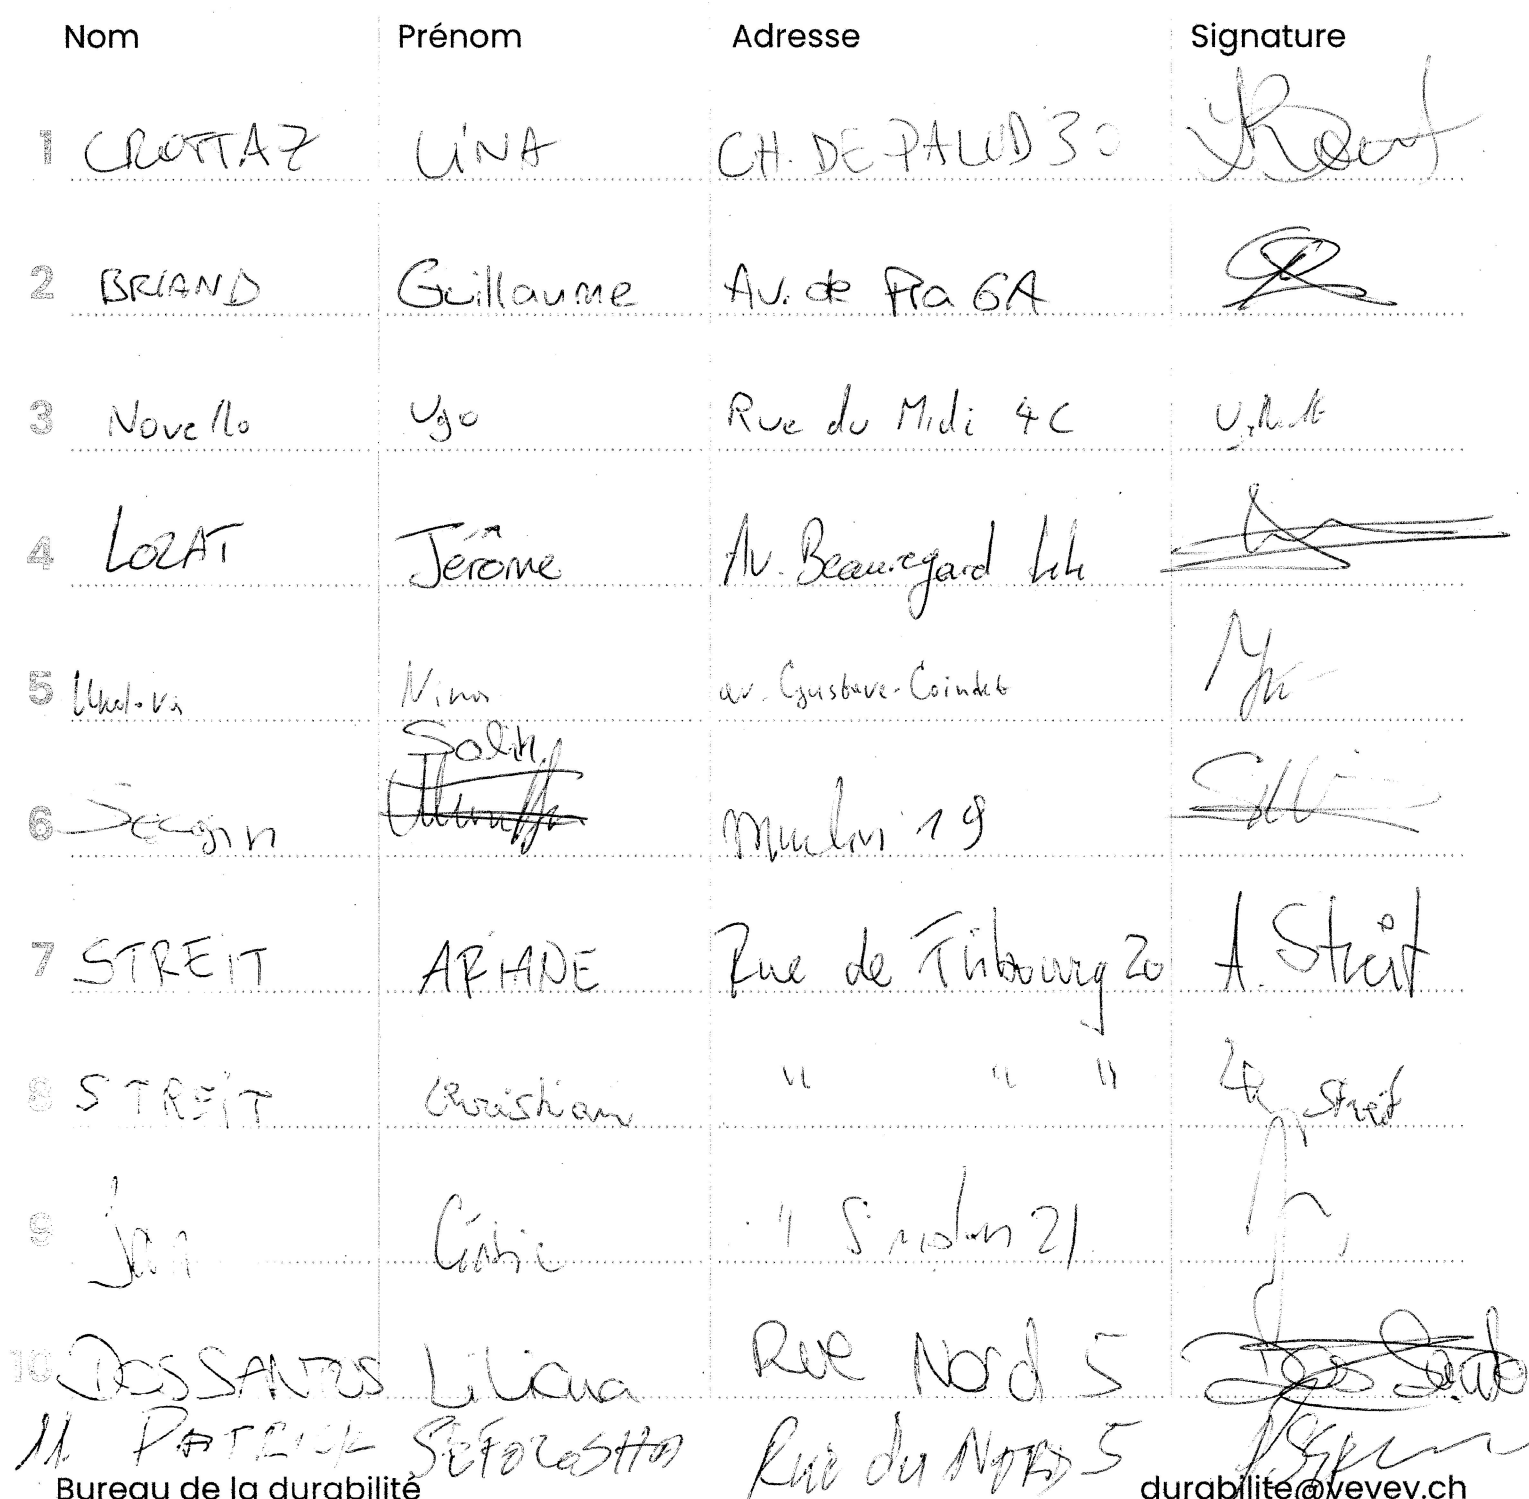 Nom Prénom Adresse Signature
1 CROTTAZ LINA CH. DE PALUD 30
2 BRIAND Guillaume Av. de Pra 6A
3 Novello Ugo Rue du Midi 4C
4 LOZAT Jérôme Av. Beauregard 44
5 Nina av. Gustave-Coindet
Salih
6 Secgin 19
7 STREIT ARIANE Rue de Fribourg 20 A. Streit
8 STREIT Christian " " " Streit
9 " 21
10 DOS SANTOS Liliana Rue Nord 5 Dos Santos
11. PATRICK SEFOLOSHA Rue du NORD 5
Bureau de la durabilité durabilite@vevey.ch